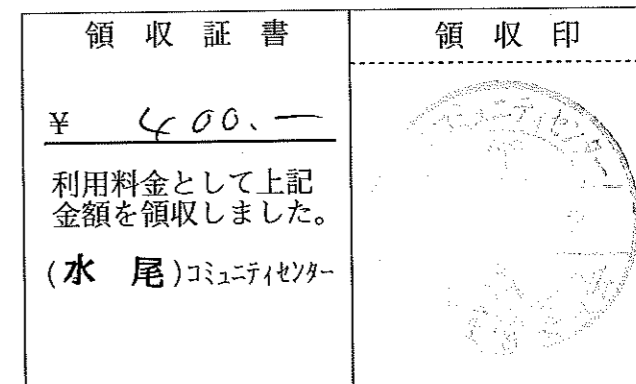 領収証書
¥ 400.—
利用料金として上記
金額を領収しました。
(水尾)コミュニティセンター
領収印